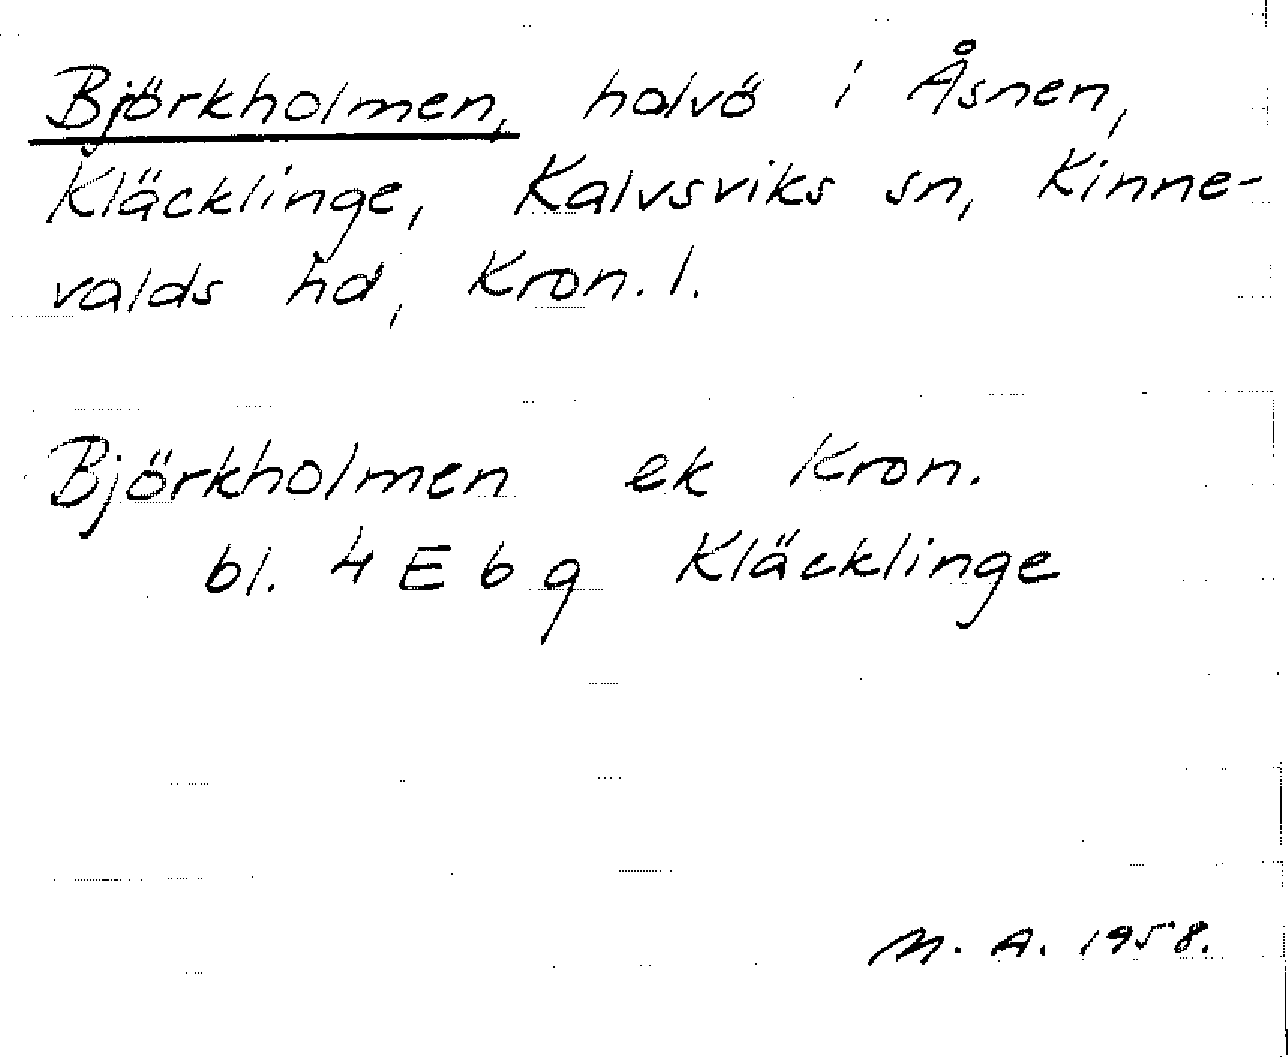 Björkholmen, halvö i Åsnen,
Kläcklinge, Kalvsviks sn, Kinne-
valds hd, Kron. l.
Björkholmen ek Kron.
bl. 4 E b g Kläcklinge
M. A. 1958.